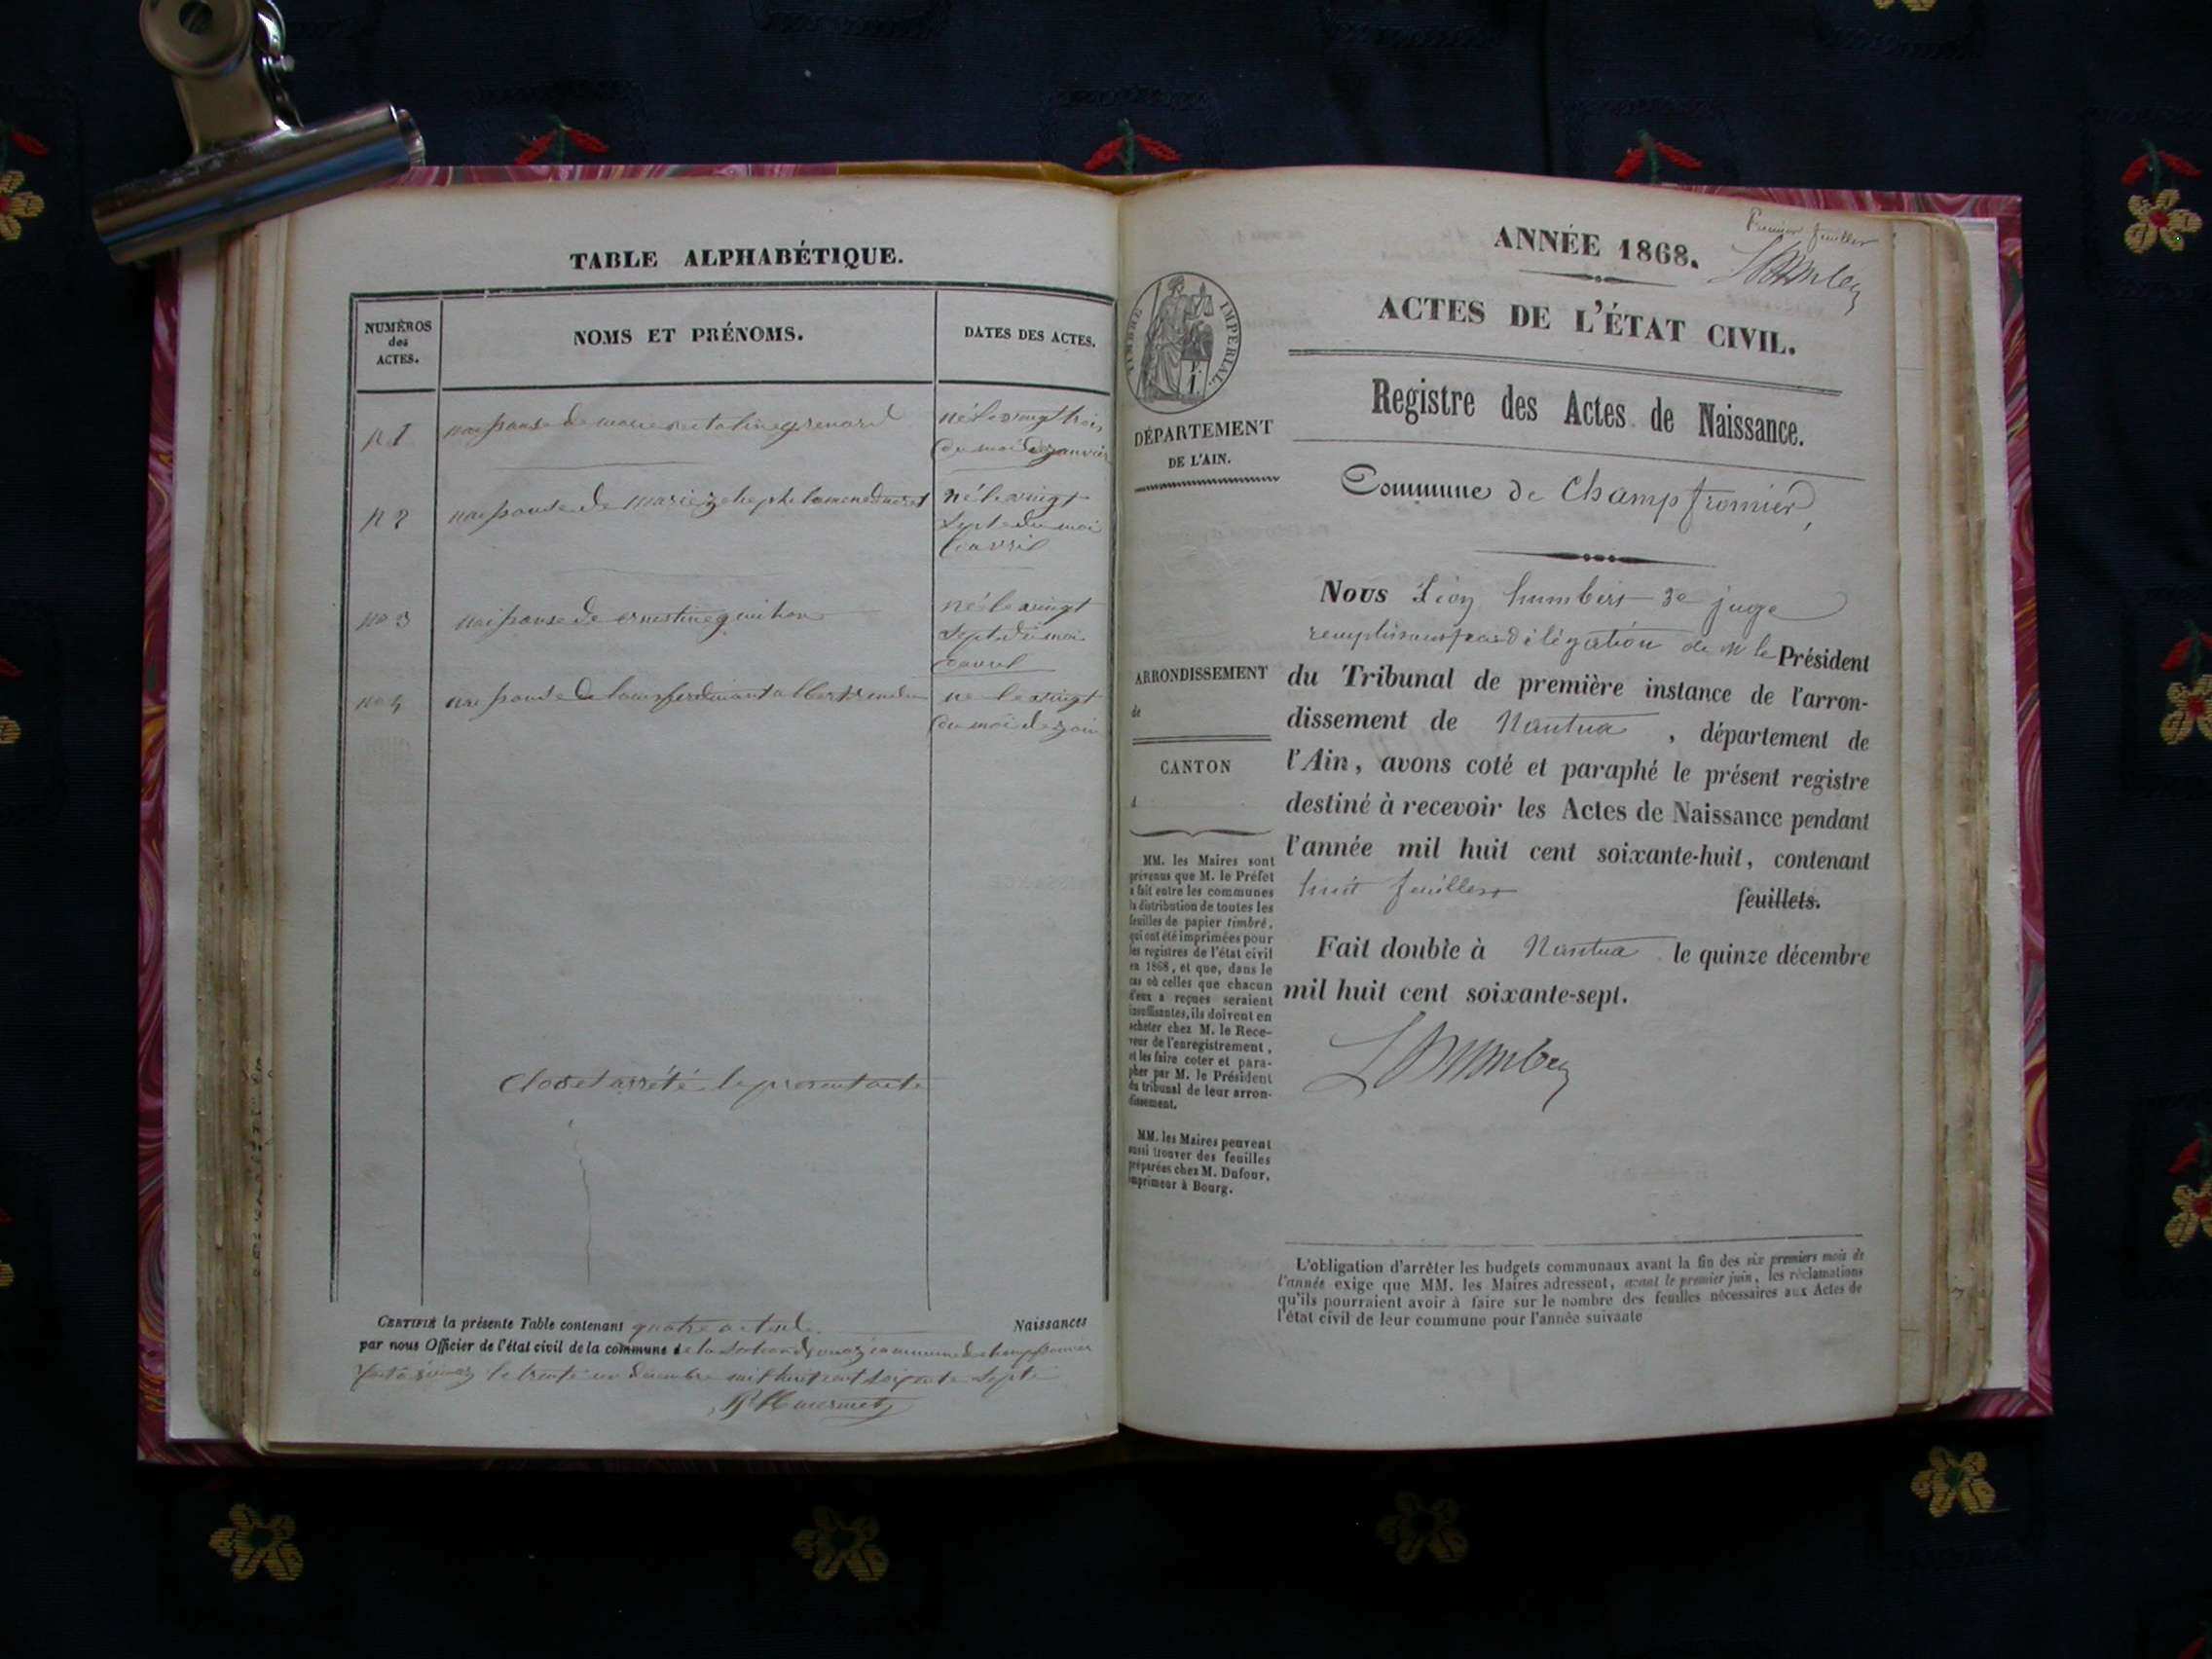 TABLE ALPHABÉTIQUE.
NUMÉROS
des
ACTES.
NOMS ET PRÉNOMS.
DATES DES ACTES.
n 1
naissance de marie grenard
né le vingt trois
du moi de janvier
n 2
naissance de marie ducret
né le vingt
sept du moi
d'avril
no 3
naissance de ernestine
né le vingt
sept du moi
d'avril
no 4
naissance de
né le vingt
du moi de
Clos et arrété le present acte
CERTIFIÉ la présente Table contenant quatre Naissances
par nous Officier de l'état civil de la commune de la commune de champfromier
le trente un decembre mil huit cent soixante sept
ANNÉE 1868.
Premier feuillet
LHumbert
ACTES DE L'ÉTAT CIVIL.
TIMBRE IMPERIAL.
Registre des Actes de Naissance.
DÉPARTEMENT
DE L'AIN.
Commune de Champfromier,
Nous Léon humbert 3e juge
remplissant par délégation de Mr le Président
ARRONDISSEMENT
de
du Tribunal de première instance de l'arron-
dissement de Nantua, département de
CANTON
d
l'Ain, avons coté et paraphé le présent registre
destiné à recevoir les Actes de Naissance pendant
l'année mil huit cent soixante-huit, contenant
huit feuillets feuillets.
Fait double à Nantua le quinze décembre
mil huit cent soixante-sept.
LHumbert
MM. les Maires sont
prévenus que M. le Préfet
a fait entre les communes
la distribution de toutes les
feuilles de papier timbré,
qui ont été imprimées pour
les registres de l'état civil
en 1868, et que, dans le
cas où celles que chacun
d'eux a reçues seraient
insuffisantes, ils doivent en
acheter chez M. le Rece-
veur de l'enregistrement,
et les faire coter et para-
pher par M. le Président
du tribunal de leur arron-
dissement.
MM. les Maires peuvent
aussi trouver des feuilles
préparées chez M. Dufour,
imprimeur à Bourg.
L'obligation d'arrêter les budgets communaux avant la fin des six premiers mois de
l'année exige que MM. les Maires adressent, avant le premier juin, les réclamations
qu'ils pourraient avoir à faire sur le nombre des feuilles nécessaires aux Actes de
l'état civil de leur commune pour l'année suivante